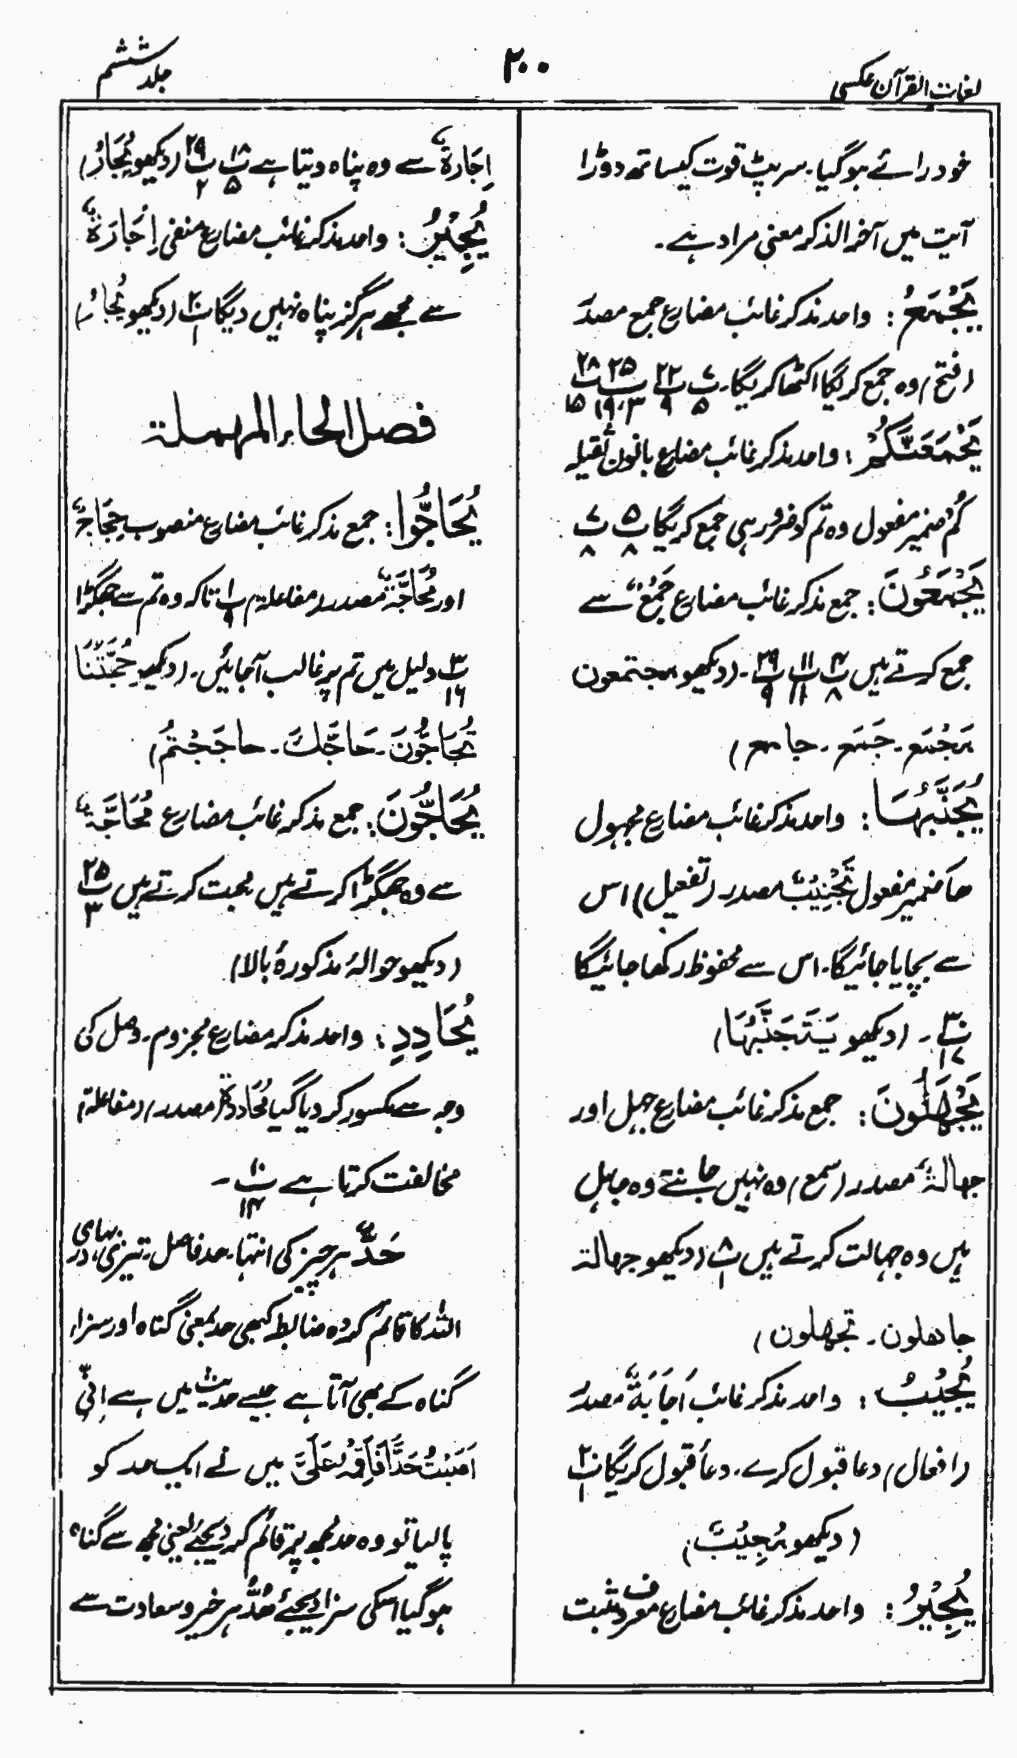 لغات القرآن عکسی
۲۰۰
جلد ششم
خود رائے ہوگیا۔ سرپٹ قوت کیساتھ دوڑا
آیت میں آخر الذکر معنی مراد ہے۔
یَجْمَعُ: واحد مذکر غائب مضارع جمع مصدر
(فتح) وہ جمع کریگا اکٹھا کریگا۔ پ ۷/۵ پ ۲۲/۹ پ ۲۵/۳،۱۹ پ ۲۸/۱۵
یَجْمَعَنَّکُمْ: واحد مذکر غائب مضارع بانون ثقیلہ
کُم ضمیر مفعول وہ تم کو ضرور ہی جمع کریگا پ ۵/۸ پ ۷/۸
یَجْمَعُوْنَ: جمع مذکر غائب مضارع جَمْعٌ سے
جمع کرتے ہیں پ ۴/۸ پ ۱۱/۱۱ پ ۲۹/۹۔ (دیکھو مجتمعون
مَجْمَع۔ جَمَع۔ جامع)
یُجَنَّبُہَا: واحد مذکر غائب مضارع مجہول
ھا ضمیر مفعول تَجْنِیْبٌ مصدر (تفعیل) اس
سے بچایا جائیگا۔ اس سے محفوظ رکھا جائیگا
پ ۳۰/۱۷۔ (دیکھو یَتَجَنَّبُہَا)
یَجْہَلُوْنَ: جمع مذکر غائب مضارع جہل اور
جھالۃٌ مصدر (سمع) وہ نہیں جانتے وہ جاہل
ہیں وہ جہالت کرتے ہیں پ ۸/۱ (دیکھو جھالۃ
جاھلون۔ تجھلون)
یُجِیْبُ: واحد مذکر غائب اَجَابَۃٌ مصدر
(افعال) دعا قبول کرے۔ دعا قبول کریگا پ ۲۰/۱
(دیکھو مُجِیْبٌ)
یُجِیْرُ: واحد مذکر غائب مضارع معروف مثبت
اِجَارَۃٌ سے وہ پناہ دیتا ہے پ ۱۸/۵ پ ۲۹/۲ (دیکھو یُجَارُ)
یُجِیْرُ: واحد مذکر غائب مضارع منفی اِجَارَۃٌ
سے مجھے ہرگز پناہ نہیں دیگا پ (دیکھو یُجَارُ)
فصل الحاء المہملۃ
یُحَاجُّوا: جمع مذکر غائب مضارع منصوب حِجَاجٌ
اور مُحَاجَّۃٌ مصدر (مفاعلۃ) پ ۱/۹ تاکہ وہ تم سے جھگڑا
پ ۳/۱۶ دلیل میں تم پر غالب آجائیں۔ (دیکھو حُجَّتُنَا
تُحَاجُّوْنَ۔ حَاجَّكَ۔ حاجَجْتُمْ)
یُحَاجُّوْنَ: جمع مذکر غائب مضارع مُحَاجَّۃٌ
سے وہ جھگڑا کرتے ہیں حجت کرتے ہیں پ ۲۵/۳
(دیکھو حوالۂ مذکورۂ بالا)
یُحَادِدِ: واحد مذکر مضارع مجزوم۔ وصل کی
وجہ سے مکسور کردیا گیا مُحَادَدَۃٌ (مصدر) (مفاعلۃ)
مخالفت کرتا ہے پ ۱۰/۱۴۔
حَدٌّ ہر چیز کی انتہا۔ حد فاصل۔ تیزی،
اللہ کا قائم کردہ ضابطہ کبھی حد بمعنی گناہ اور سزا،
گناہ کے بھی آتا ہے جیسے حدیث میں ہے اِنِّیْ
اَصَبْتُ حَدًّا فَاَقِمْہُ عَلَیَّ میں نے ایک حد کو
پالیا تو وہ حد مجھ پر قائم کردیجئے یعنی مجھ سے گناہ
ہوگیا اسکی سزا دیجئے حُدٌّ ہر خیر و سعادت سے